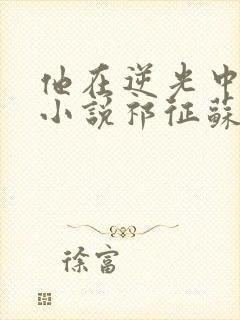 他在逆光中
小说祁征蘇
徐富